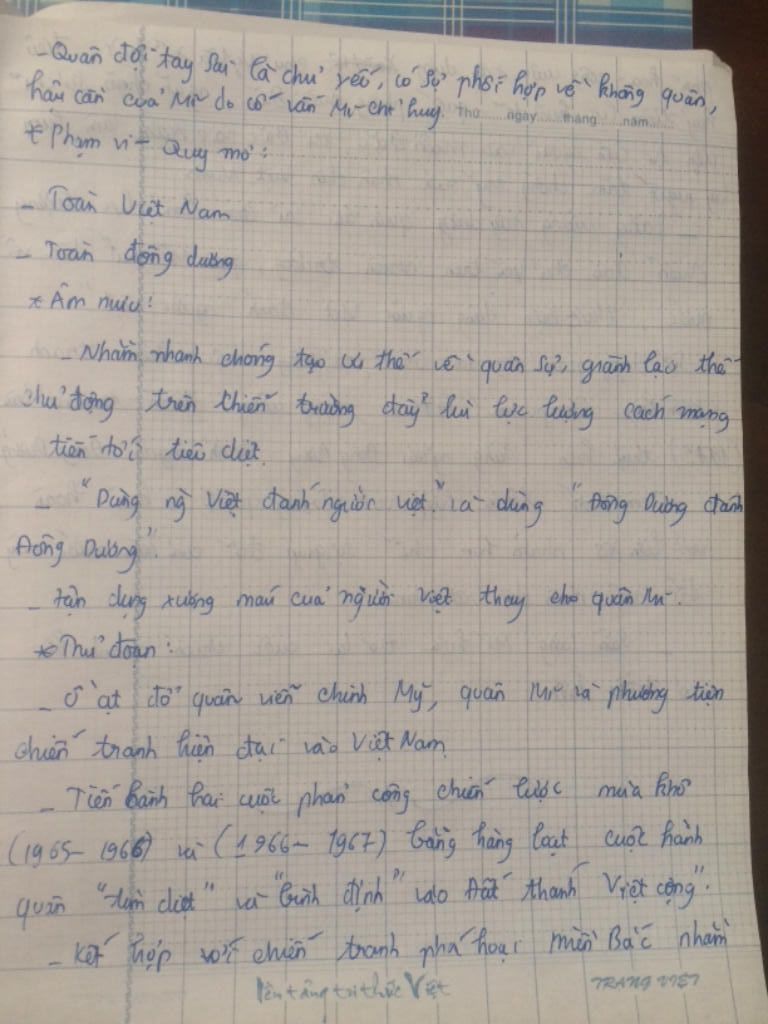 - Quân đội tay sai là chủ yếu, có sự phối hợp về không quân,
hậu cần của Mĩ do cố vấn Mĩ chỉ huy. Thứ......ngày......tháng......năm......
* Phạm vi - Quy mô:
- Toàn Việt Nam
- Toàn đông dương
* Âm mưu:
- Nhằm nhanh chóng tạo ưu thế về quân sự, giành lại thế
chủ động trên chiến trường đẩy lùi lực lượng cách mạng
tiến tới tiêu diệt.
- "Dùng ng Việt đánh người việt." và dùng "Đông Dương đánh
Đông Dương".
- tận dụng xương máu của người việt thay cho quân Mĩ.
* Thủ đoạn:
- ồ ạt đổ quân viễn chinh Mỹ, quân Mĩ và phương tiện
chiến tranh hiện đại vào Việt Nam
- Tiến hành hai cuộc phản công chiến lược mùa khô
(1965- 1966) và (1966- 1967) bằng hàng loạt cuộc hành
quân "tìm diệt" và "bình định" vào Đất thánh Việt cộng".
- Kết hợp với chiến tranh phá hoại miền Bắc nhằm
Nền tảng tri thức Việt TRANG VIET